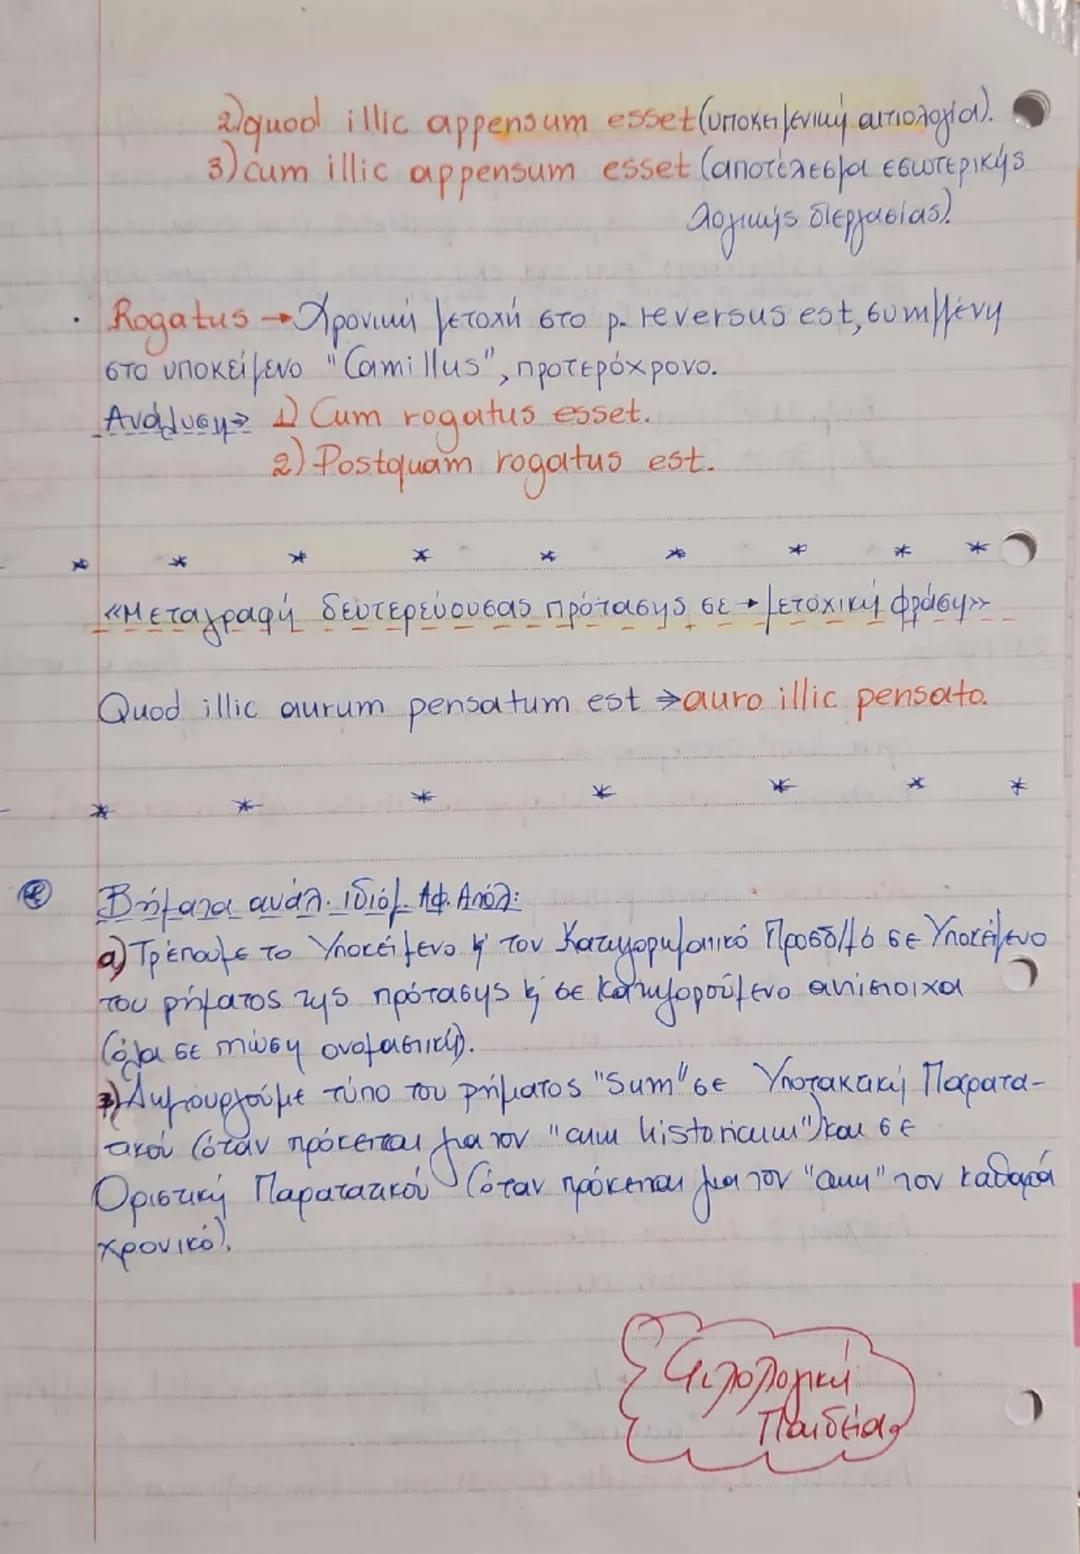 2) quod illic appensum esset (υποκειμενική αιτιολογία).
3) cum illic appensum esset (αποτέλεσμα εσωτερικής
λογικής διεργασίας).
· Rogatus → Χρονική μετοχή στο ρ. reversus est, συνημμένη
στο υποκείμενο "Camillus", προτερόχρονο.
Ανάλυση → 1) Cum rogatus esset.
2) Postquam rogatus est.
* * * * * * * * *
«Μεταγραφή δευτερεύουσας πρότασης σε → μετοχική φράση»
Quod illic aurum pensatum est → auro illic pensato.
* * * * * * *
Βήματα ανάλ. ιδιόμ. Αφ. Απόλ:
α) Τρέπουμε το Υποκείμενο κ' τον Κατηγορηματικό Προσδ/μό σε Υποκείμενο
του ρήματος της πρότασης κ' σε κατηγορούμενο αντίστοιχα
(όλα σε πτώση ονομαστική).
β) Δημιουργούμε τύπο του ρήματος "Sum" σε Υποτακτική Παρατα-
τικού (όταν πρόκειται για τον "cum historicum") και σε
Οριστική Παρατατικού (όταν πρόκειται για τον "cum" τον καθαρά
χρονικό).
Φιλολογική
Παιδεία